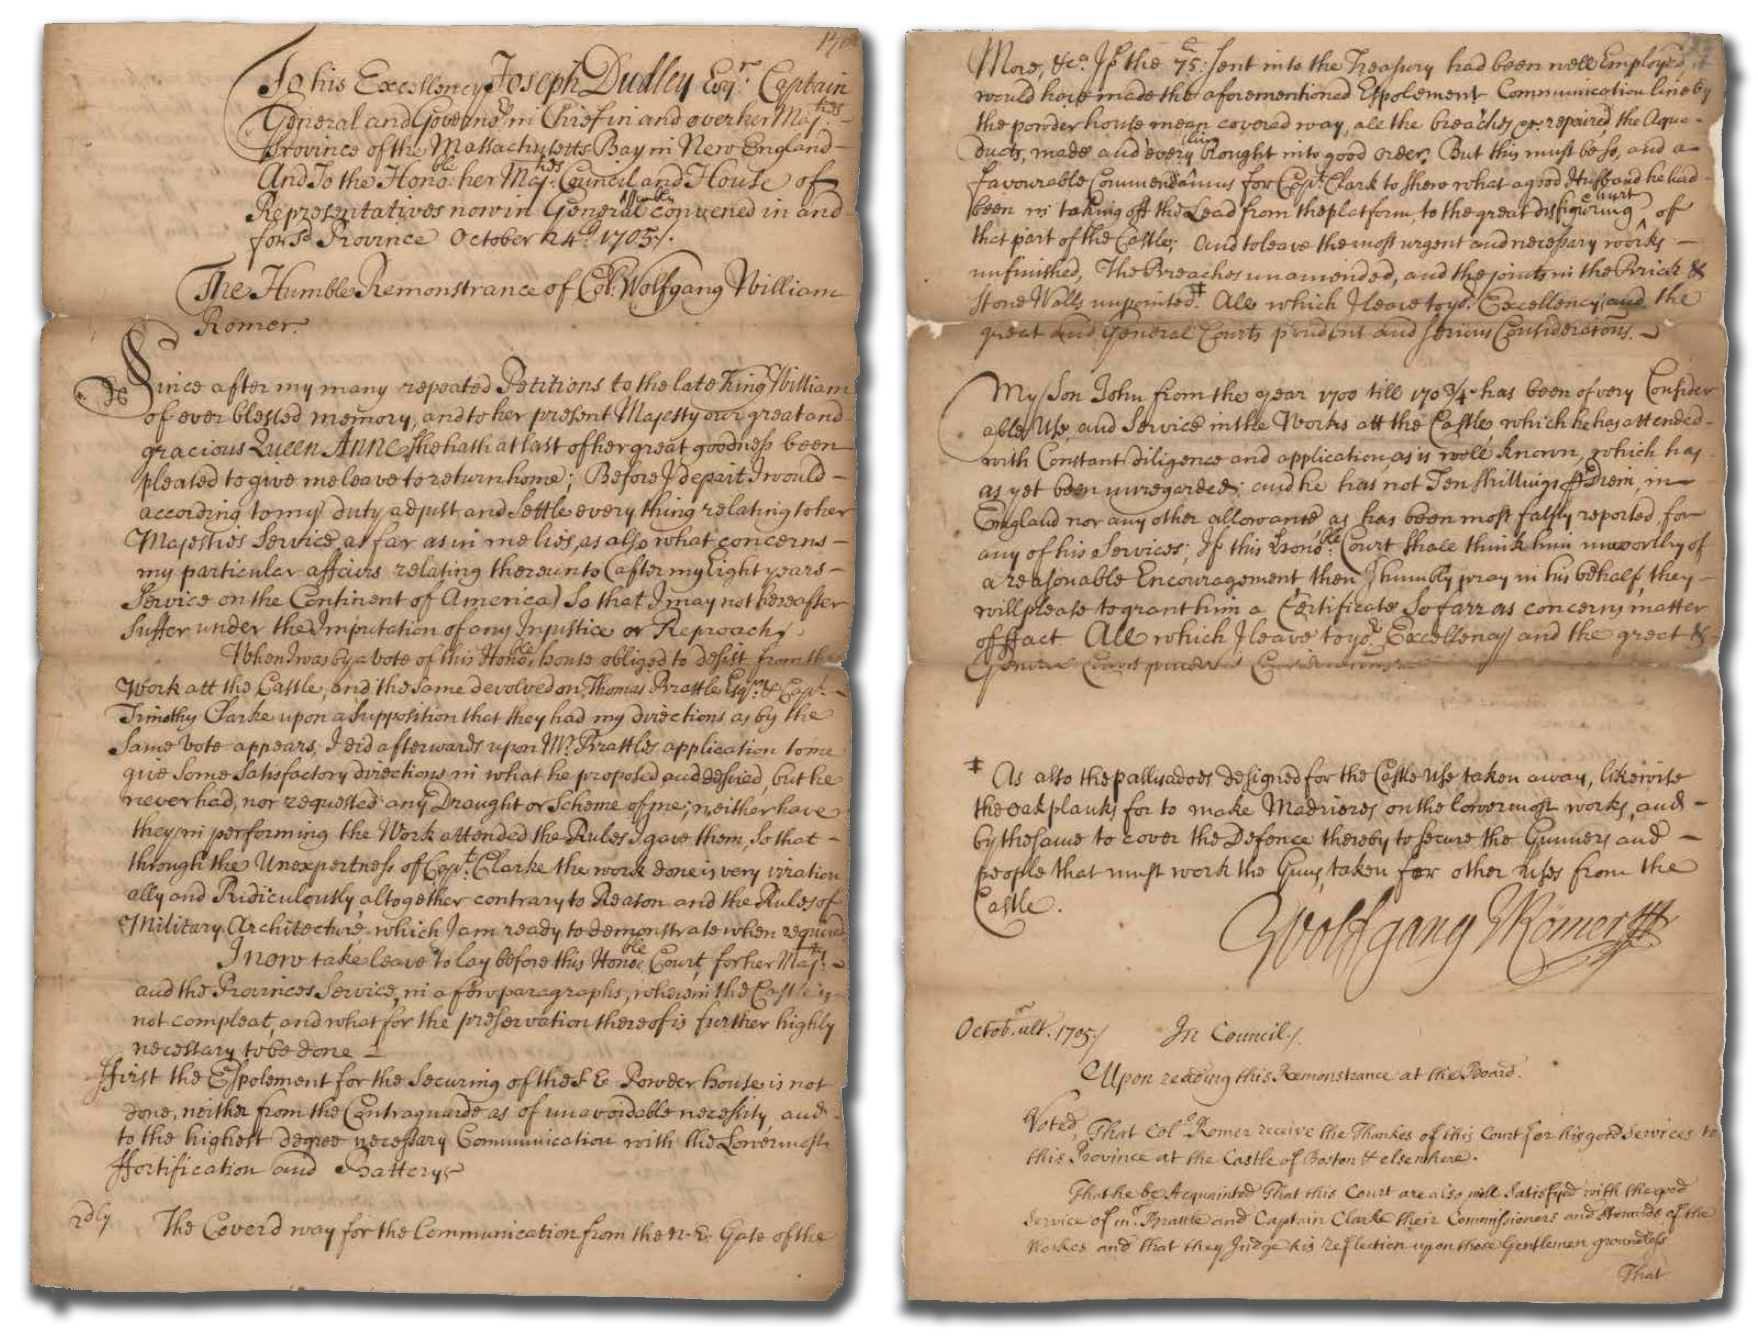 To his Excellency Joseph Dudley Esqr. Captain
General and Governor in Chief in and over her Majties
Province of the Massachusetts Bay in New England
And To the Honoble her Majties Council and House of
Representatives now in General Assembly convened in and
for sd. Province October 24th 1705/.
The Humble Remonstrance of Col. Wolfgang William
Romer.
Since after my many repeated Petitions to the late King William
of ever blessed memory, and to her present Majesty our great and
gracious Queen Anne, she hath at last of her great goodness been
pleased to give me leave to return home; Before I depart I would
according to my duty adjust and settle every thing relating to her
Majesties Service as far as in me lies, as also what concerns
my particular affairs relating thereunto (after my Eight years
Service on the Continent of America) So that I may not hereafter
Suffer under the Imputation of any Injustice or Reproach.
When I was by a vote of this Honoble house obliged to desist from the
Work att the Castle, and the same devolved on Thomas Brattle Esqr. & Capt.
Timothy Clarke upon a Supposition that they had my directions as by the
Same Vote appears, I did afterwards upon Mr. Brattles application to me
give some Satisfactory directions in what he proposed, and desired, but he
never had, nor requested any Draught or Scheme of me; neither have
they in performing the Work attended the Rules I gave them, So that
through the Unexpertness of Capt. Clarke the work done is very irration
ally and Ridiculously, altogether contrary to Reason and the Rules of
Military Architecture, which I am ready to demonstrate when required.
I now take leave to lay before this Honoble Court, for her Majts.
and the Provinces Service, in a few paragraphs, wherein the Castle is
not compleat, and what for the preservation thereof is further highly
necessary to be done
ffirst the Espolement for the Securing of the S E Powder house is not
done, neither from the Contraguarde as of unavoidable necessity, and
to the highest degree necessary Communication with the Lowermost
ffortification and Battery
2dly The Coverd way for the Communication from the N. E. Gate of the
More, &ca. If the 75: sent into the Treasury had been well Employed, it
would have made the aforementioned Espolement Communication line by
the powder house mean covered way, all the breaches repaired, the Aque-
ducts, made and every thing brought into good order; But this must be so, and a
favourable Commendamus for Capt. Clark to shew what a good Husband he had
been in taking off the Lead from the platform, to the great disfiguring hurt of
that part of the Castle; And to leave the most urgent and necessary works
unfinished, The Breaches unamended, and the joints in the Brick &
Stone Walls unpointed. All which I leave to yor. Excellency, and the
great and General Courts prudent and serious Considerations.
My Son John from the year 1700 till 1703/4 has been of very Consider
able Use, and Service in the Works att the Castle, which he has attended
with Constant diligence and application, as is well known, which has
as yet been unregarded; and he has not Ten Shillings Diem, in
England nor any other allowance, as has been most falsly reported, for
any of his Services; If this Honoble. Court shall think him unworthy of
a reasonable Encouragement then I humbly pray in his behalf, they
will please to grant him a Certificate So farr as concerns matter
of ffact All which I leave to yor. Excellency and the great &
General Courts
As also the pallysadoes designed for the Castle Use taken away, likewise
the oak planks for to make Madrieres on the lowermost works, and
by the same to cover the Defence thereby to secure the Gunners and
people that must work the Guns, taken for other uses from the
Castle.
Wolfgang W Romer
Octobr. ult. 1705/ In Council/.
Upon reading this Remonstrance at the Board.
Voted, That Colo. Romer receive the Thankes of this Court for his good Services to
this Province at the Castle of Boston & elsewhere.
That he be Acquainted That this Court are also well Satisfyed with the good
Service of mr. Brattle and Captain Clarke their Commissioners and Stewards of the
Workes and that they Judge his reflection upon those Gentlemen groundless
That